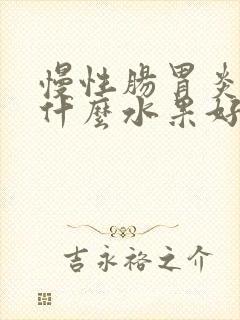 慢性腸胃炎
什麼水果好
吉永裕之介